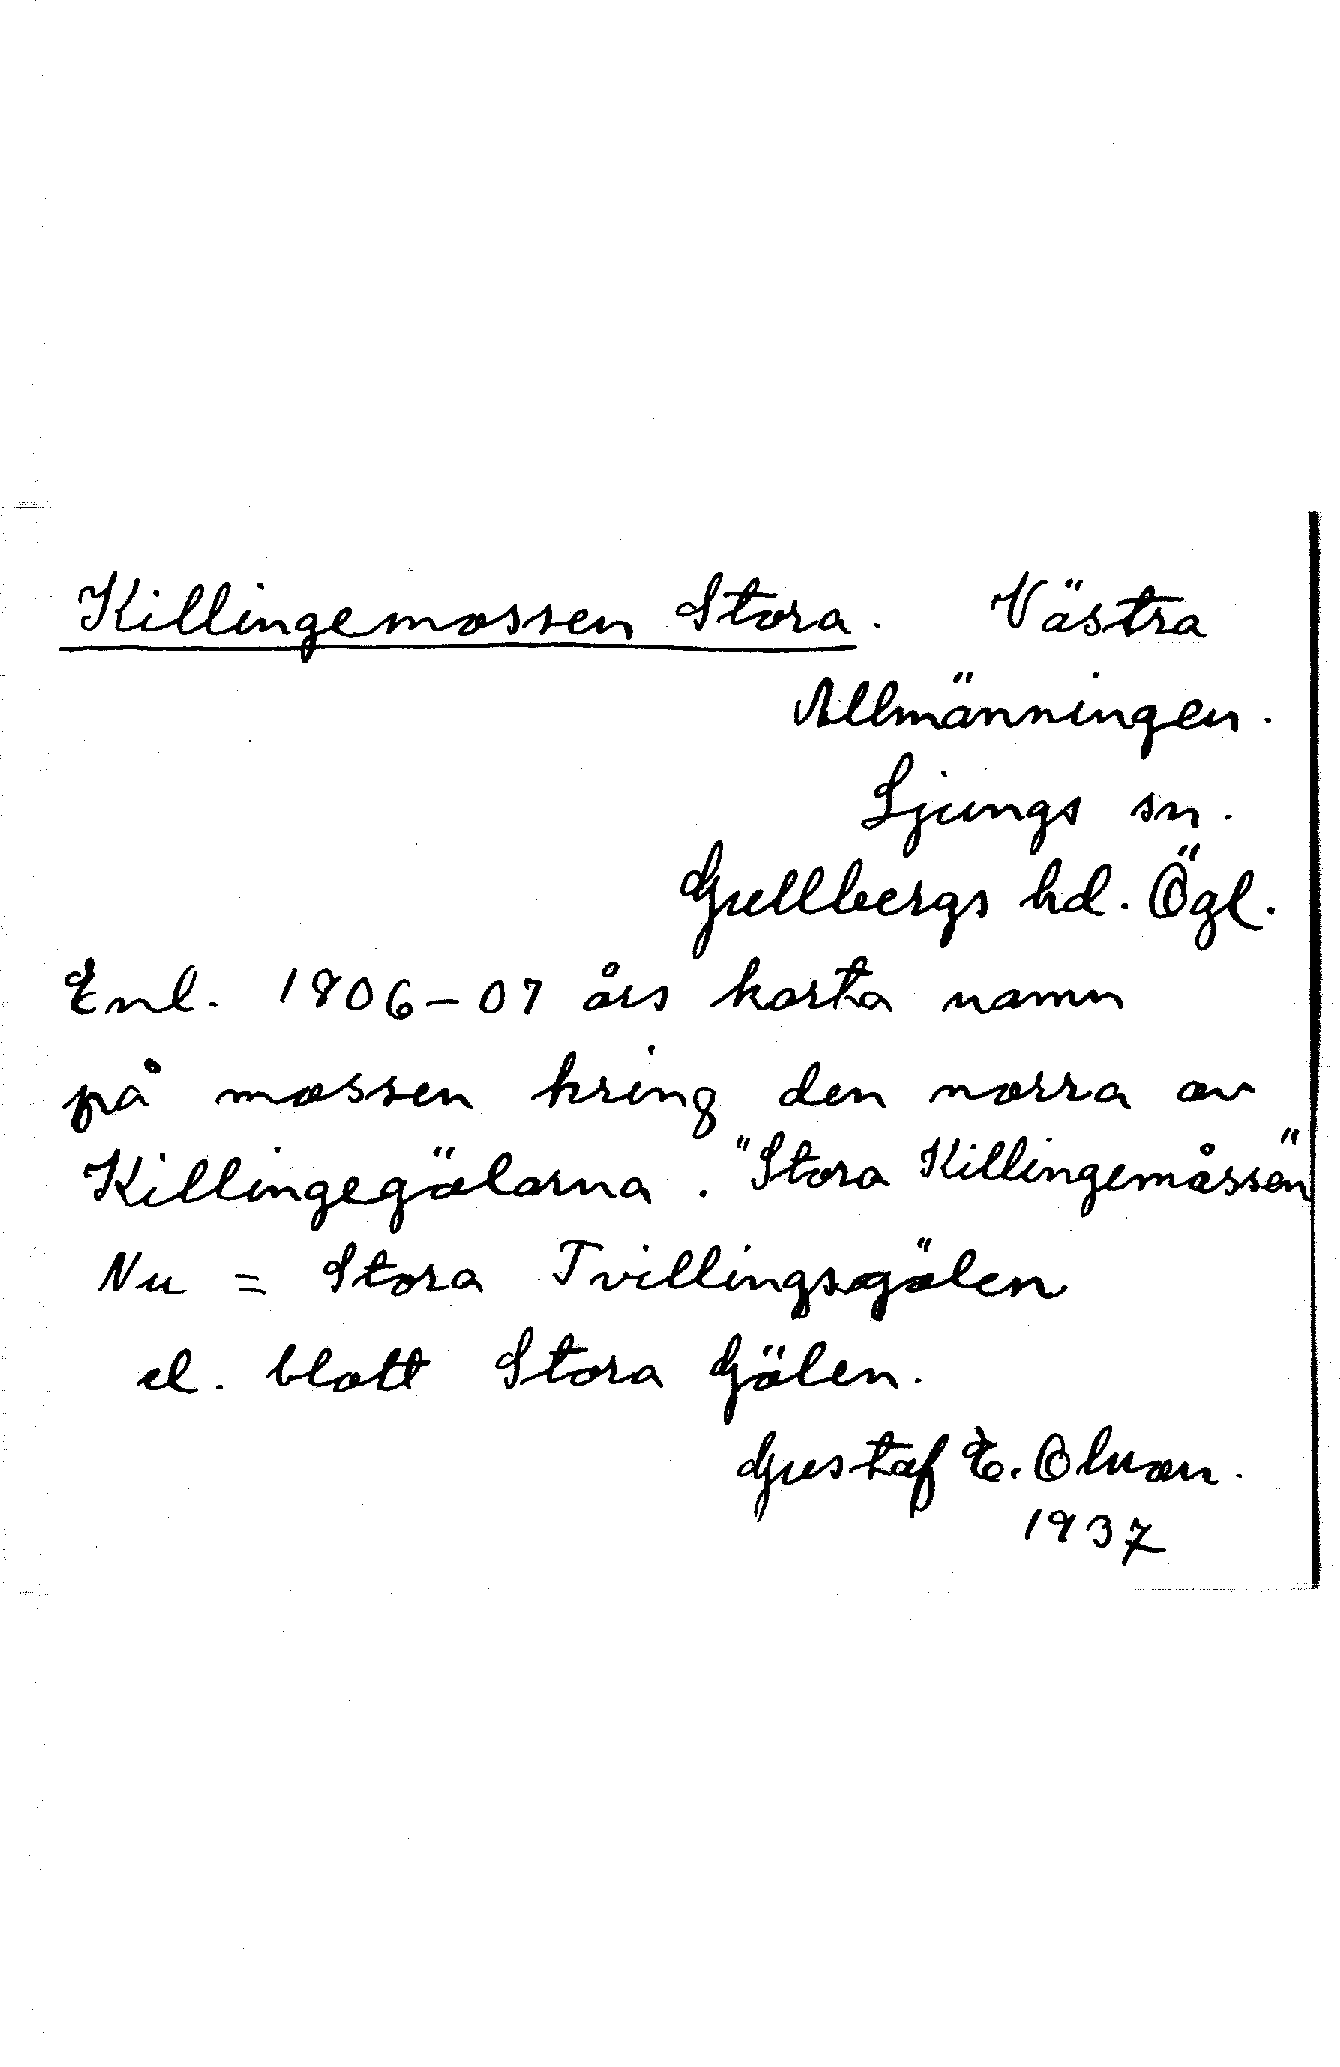 Killingemossen Stora. Västra
Allmänningen.
Ljungs sn.
Gullbergs hd. Ögl.
Enl. 1806-07 års karta namn
på mossen kring den norra av
Killingegölarna. "Stora Killingemåssen"
Nu = Stora Tvillingsgölen
el. blott Stora Gölen.
Gustaf E. Olson.
1937